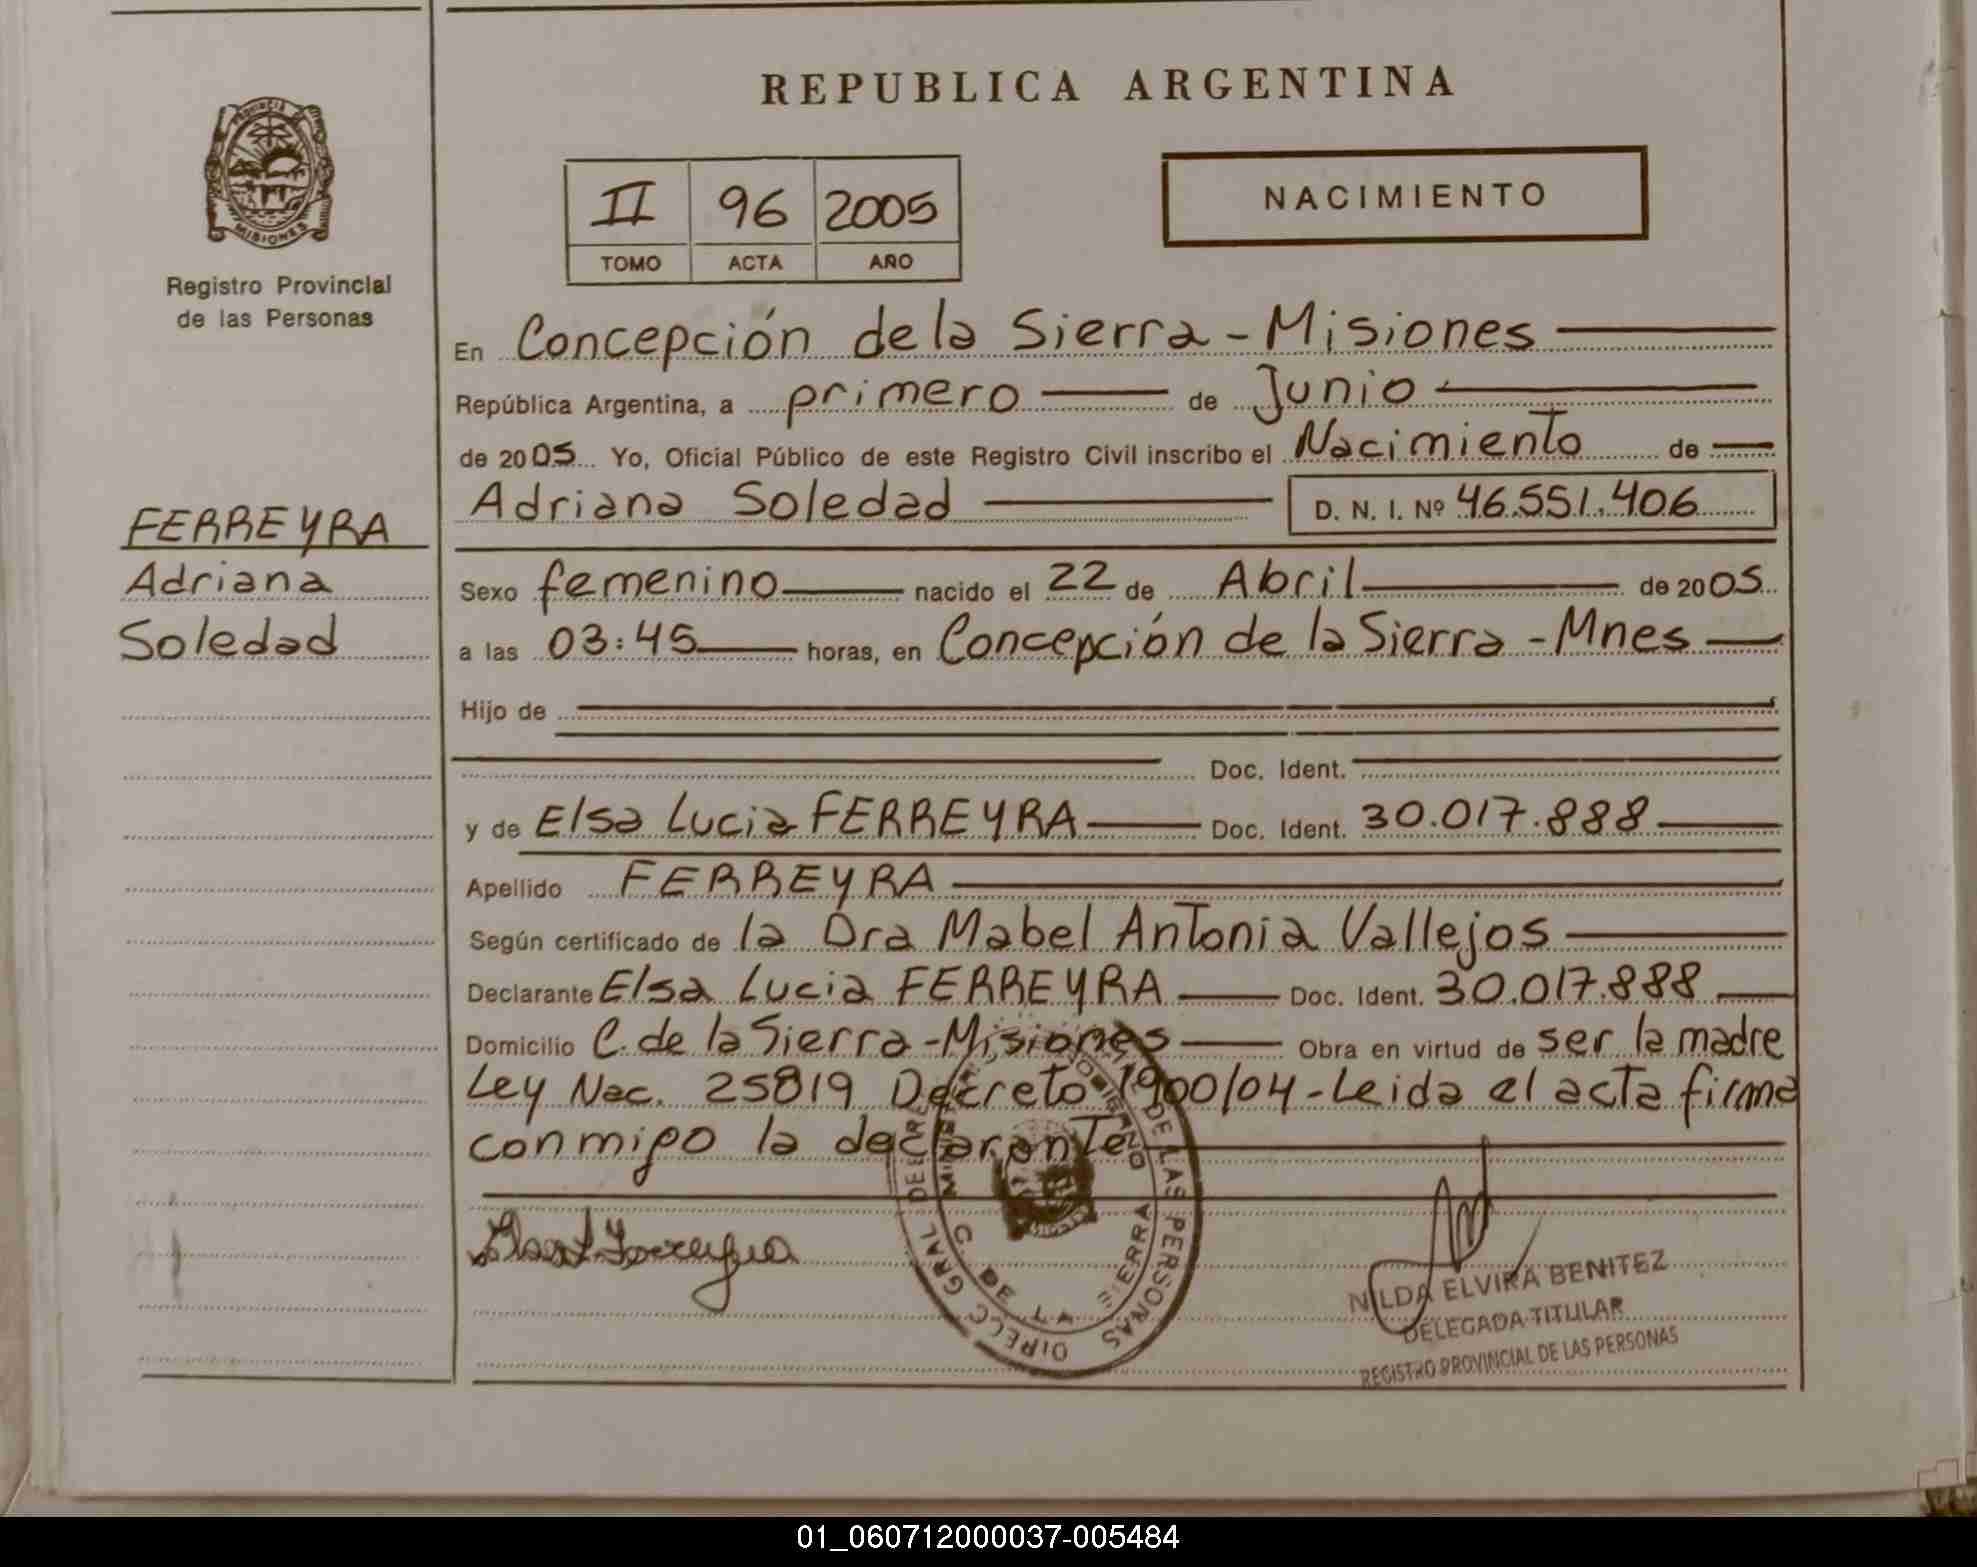 REPUBLICA ARGENTINA
PROVINCIA DE
MISIONES
Registro Provincial
de las Personas
II 96 2005
TOMO ACTA AÑO
NACIMIENTO
FERREYRA
Adriana
Soledad
En Concepción de la Sierra - Misiones
República Argentina, a primero de Junio
de 2005 Yo, Oficial Público de este Registro Civil inscribo el Nacimiento de
Adriana Soledad D. N. I. Nº 46.551.406
Sexo femenino nacido el 22 de Abril de 2005
a las 03:45 horas, en Concepción de la Sierra - Mnes
Hijo de
Doc. Ident.
y de Elsa Lucia FERREYRA Doc. Ident. 30.017.888
Apellido FERREYRA
Según certificado de la Dra Mabel Antonia Vallejos
Declarante Elsa Lucia FERREYRA Doc. Ident. 30.017.888
Domicilio C. de la Sierra - Misiones Obra en virtud de ser la madre
Ley Nac. 25819 Decreto 1900/04 - Leida el acta firma
conmigo la declarante
DE LAS PERSONAS
SIERRA
NILDA ELVIRA BENITEZ
DELEGADA TITULAR
REGISTRO PROVINCIAL DE LAS PERSONAS
01_060712000037-005484